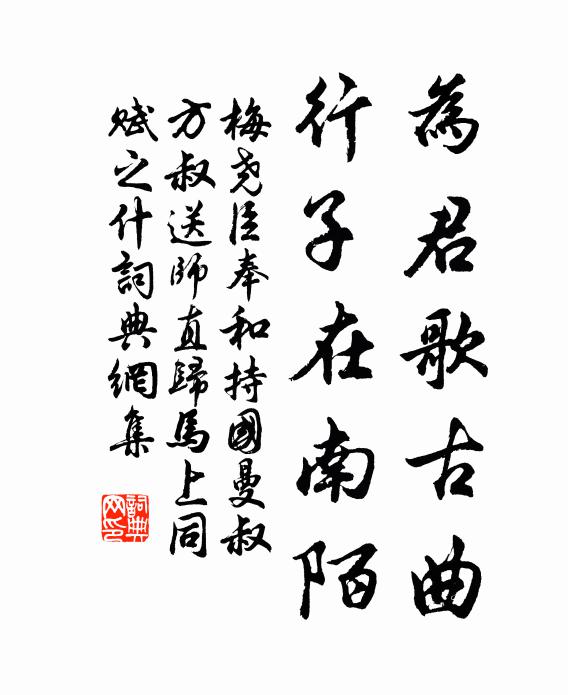 為君歌古曲
行子在南陌
梅尧臣奉和持國曼叔
方叔送師直歸馬上同
賦之什詞典網集
詞典
网印